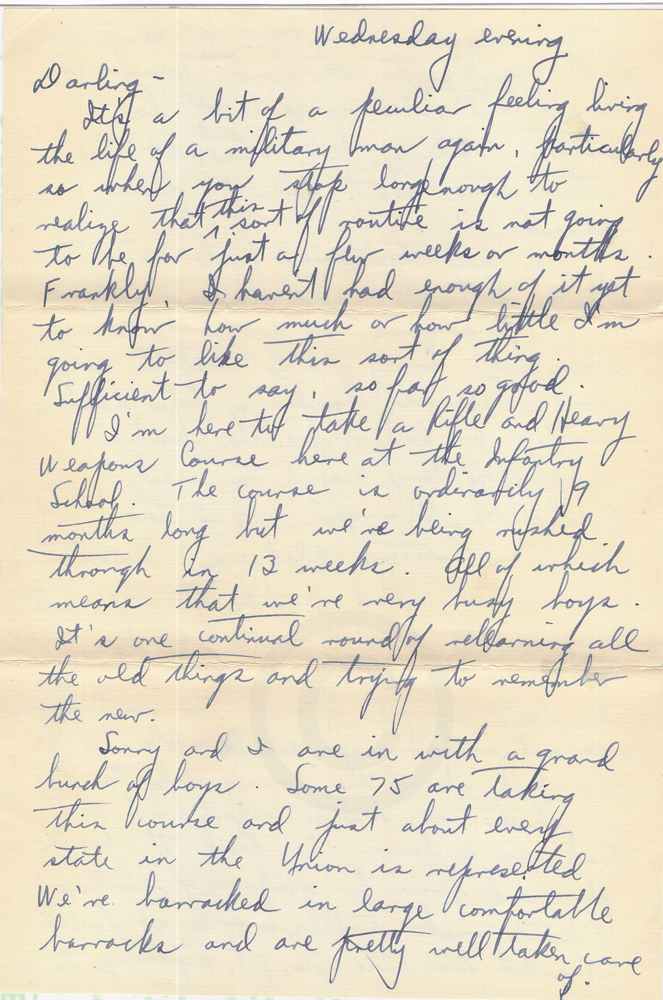 Wednesday evening
Darling -
It's a bit of a peculiar feeling living
the life of a military man again, particularly
so when you stop long enough to
realize that this sort of routine is not going
to be for just a few weeks or months.
Frankly, I haven't had enough of it yet
to know how much or how little I'm
going to like this sort of thing.
Sufficient to say, so far so good.
I'm here to take a Rifle and Heavy
Weapons Course here at the Infantry
School. The course is ordinarily 9
months long but we're being rushed
through in 13 weeks. All of which
means that we're very busy boys.
It's one continual round of relearning all
the old things and trying to remember
the new.
Sonny and I are in with a grand
bunch of boys. Some 75 are taking
this course and just about every
state in the Union is represented
We're barracked in large comfortable
barracks and are pretty well taken care
of.